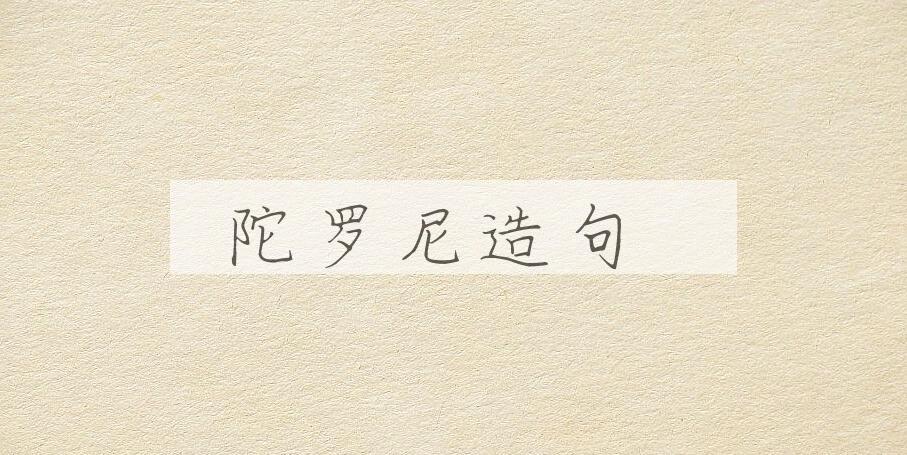 陀罗尼造句